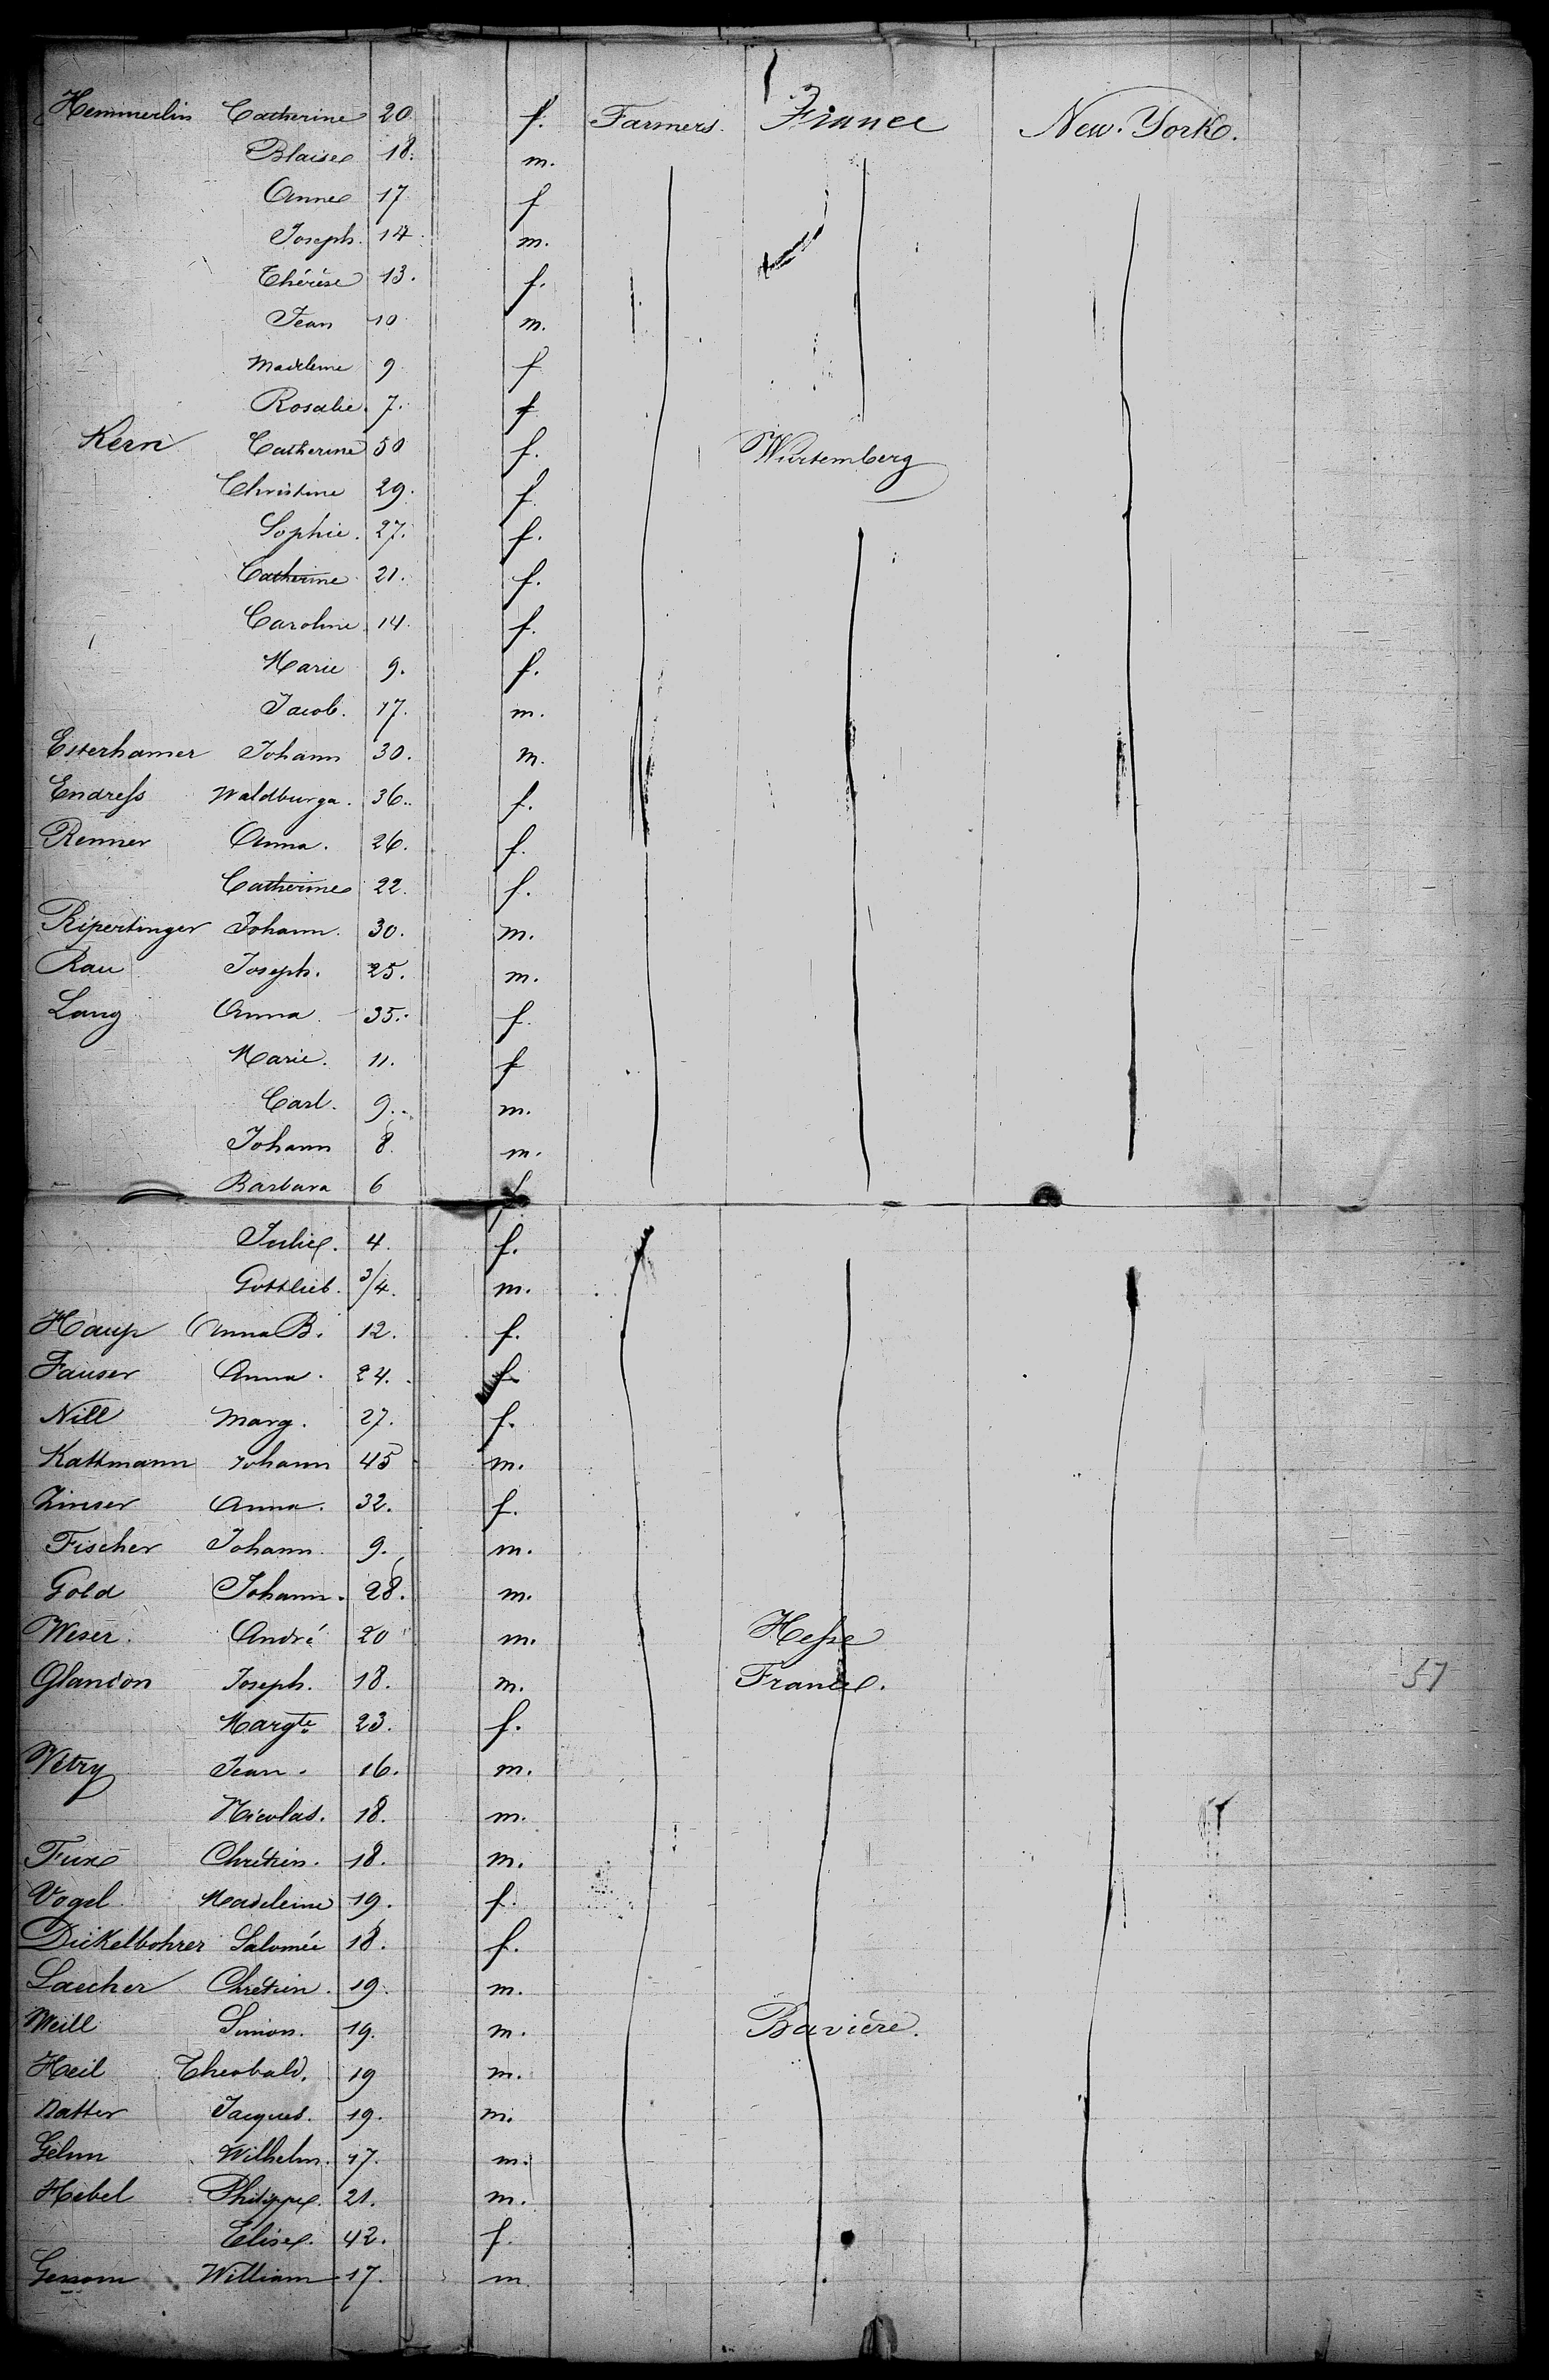 Hemmerlin Catherine 20 f. Farmers. France New-York.
Blaise 18. m.
Anne 17 f
Joseph. 14 m.
Thérèse 13. f.
Jean 10 m.
Madeleine 9 f
Rosalie. 7. f
Kern Catherine 50 f. Wurtemberg
Christine 29. f
Sophie. 27. f.
Catherine 21. f.
Caroline 14. f.
Marie 9. f.
Jacob. 17. m.
Esterhamer Johann 30. m.
Endreſs Waldburga. 36. f.
Renner Anna. 26. f.
Catherine 22. f.
Ripertinger Johann. 30. m.
Rau Joseph. 25. m.
Lang Anna 35. f.
Marie. 11. f
Carl. 9. m.
Johann 8. m.
Barbara 6 f
Julie. 4. f.
Gottlieb. 3/4. m.
Haup Anna B. 12. f.
Fauser Anna. 24. f.
Nill Marg. 27. f.
Kattmann Johann 45 m.
Zinser Anna. 32. f.
Fischer Johann 9. m.
Gold Johann. 28. m.
Weser. André 20 m. Heſse
Glandon Joseph. 18. m. France.
Margte 23. f.
Vétry Jean. 16. m.
Nicolas. 18. m.
Fuxe Chrétien. 18. m.
Vogel Madeleine 19. f.
Dickelbohrer Salomée 18. f.
Laecher Chrétien. 19. m.
Meill Simon. 19. m. Bavière.
Heil Theobald. 19 m.
Natter Jacques. 19. m.
Gelm Wilhelm. 17. m.
Hebel Philippe. 21. m.
Elise. 42. f.
William 17. m.
57